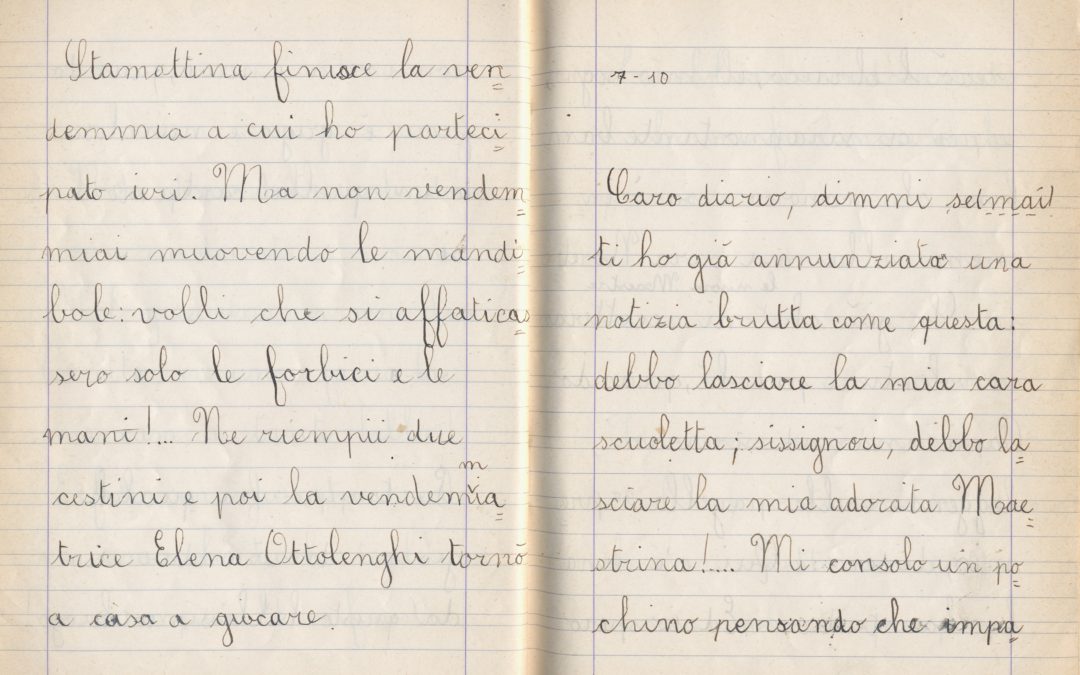 Stamattina finisce la ven=
demmia a cui ho parteci=
pato ieri. Ma non vendem=
miai muovendo le mandi=
bole: volli che si affaticas=
sero solo le forbici e le
mani!... Ne riempii due
cestini e poi la vendemmia=
trice Elena Ottolenghi tornò
a casa a giocare.
7-10
Caro diario, dimmi se mai
ti ho già annunziato una
notizia brutta come questa:
debbo lasciare la mia cara
scuoletta; sissignori, debbo la=
sciare la mia adorata Mae=
strina!.... Mi consolo un po=
chino pensando che impa=